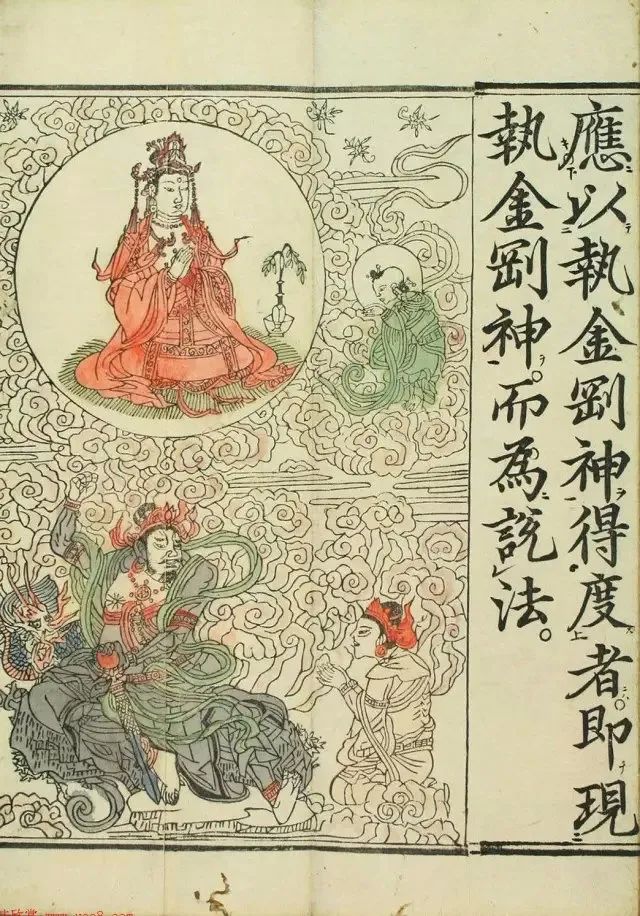 應以執金剛神得度者即現
執金剛神而為說法。